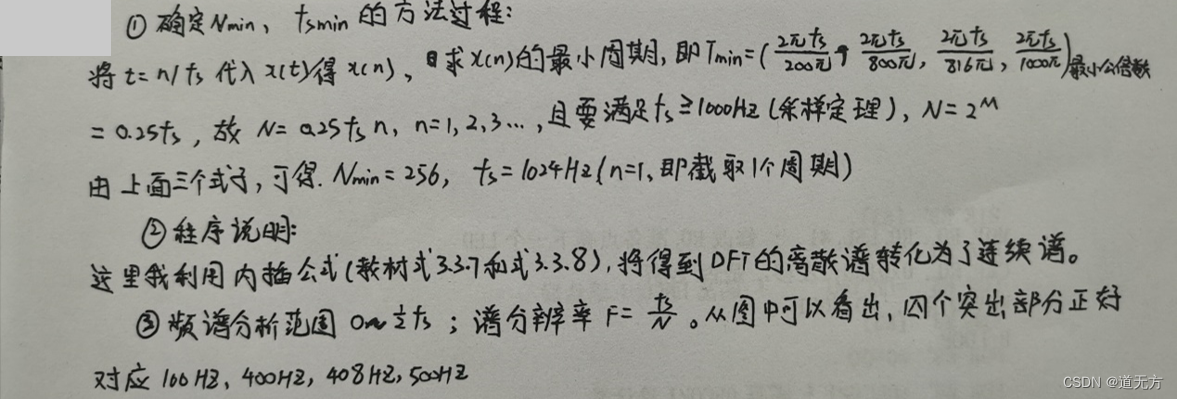 ① 确定Nmin、fsmin 的方法过程:
将 t=n/fs 代入 x(t)得 x(n),求 x(n)的最小周期,即Tmin=(2πfs/200π, 2πfs/800π, 2πfs/816π, 2πfs/1000π)最小公倍数
=0.25fs,故 N=0.25fs n, n=1,2,3…,且要满足fs≥1000Hz(采样定理),N=2^M
由上面三个式子,可得. Nmin=256, fs=1024Hz(n=1、即截取1个周期)
②程序说明:
这里我利用内插公式(教材式3.3.7和式3.3.8),将得到DFT的离散谱转化为了连续谱。
③ 频谱分析范围 0~½fs;谱分辨率 F=fs/N。从图中可以看出,四个突出部分正好
对应 100HZ、400HZ,408HZ,500HZ
CSDN @道无方